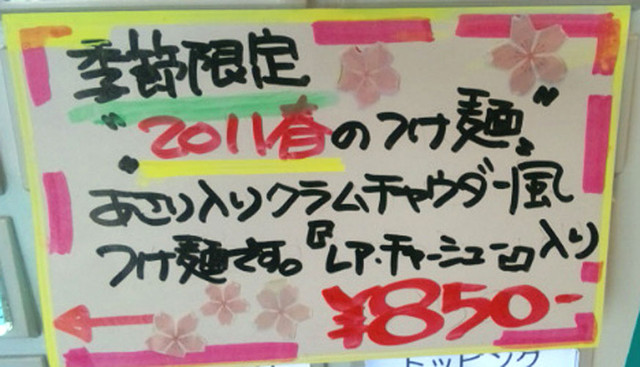 季節限定
"2011春のつけ麺"
あさり入りクラムチャウダー風
つけ麺です。『レア・チャーシュー』入り
¥850-
トッピング